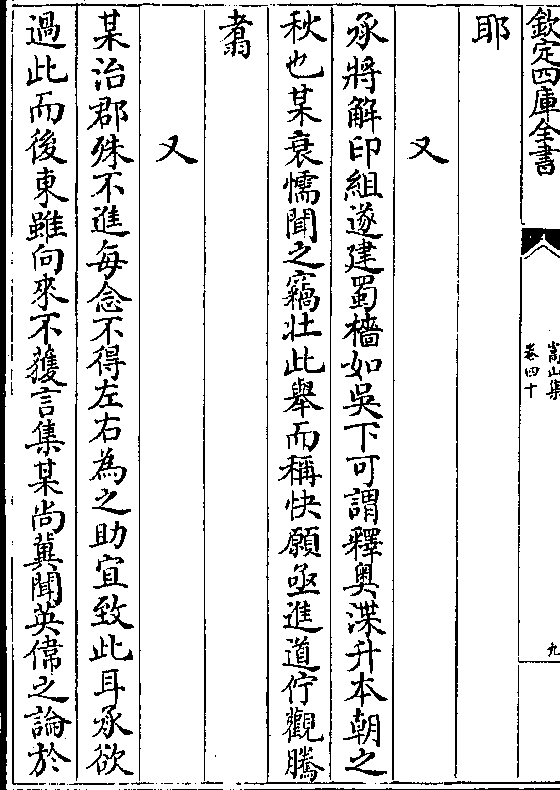 欽定四庫全書
嵩山集
卷四十
九
耶
又
承將解印組遂建蜀檣如吳下可謂釋奥渫升本朝之
秋也某衰懦聞之竊壯此舉而稱快願亟進道佇觀騰
翥
又
某治郡殊不進每念不得左右為之助宜致此耳承欲
過此而後東雖向來不獲言集某尚冀聞英偉之論於